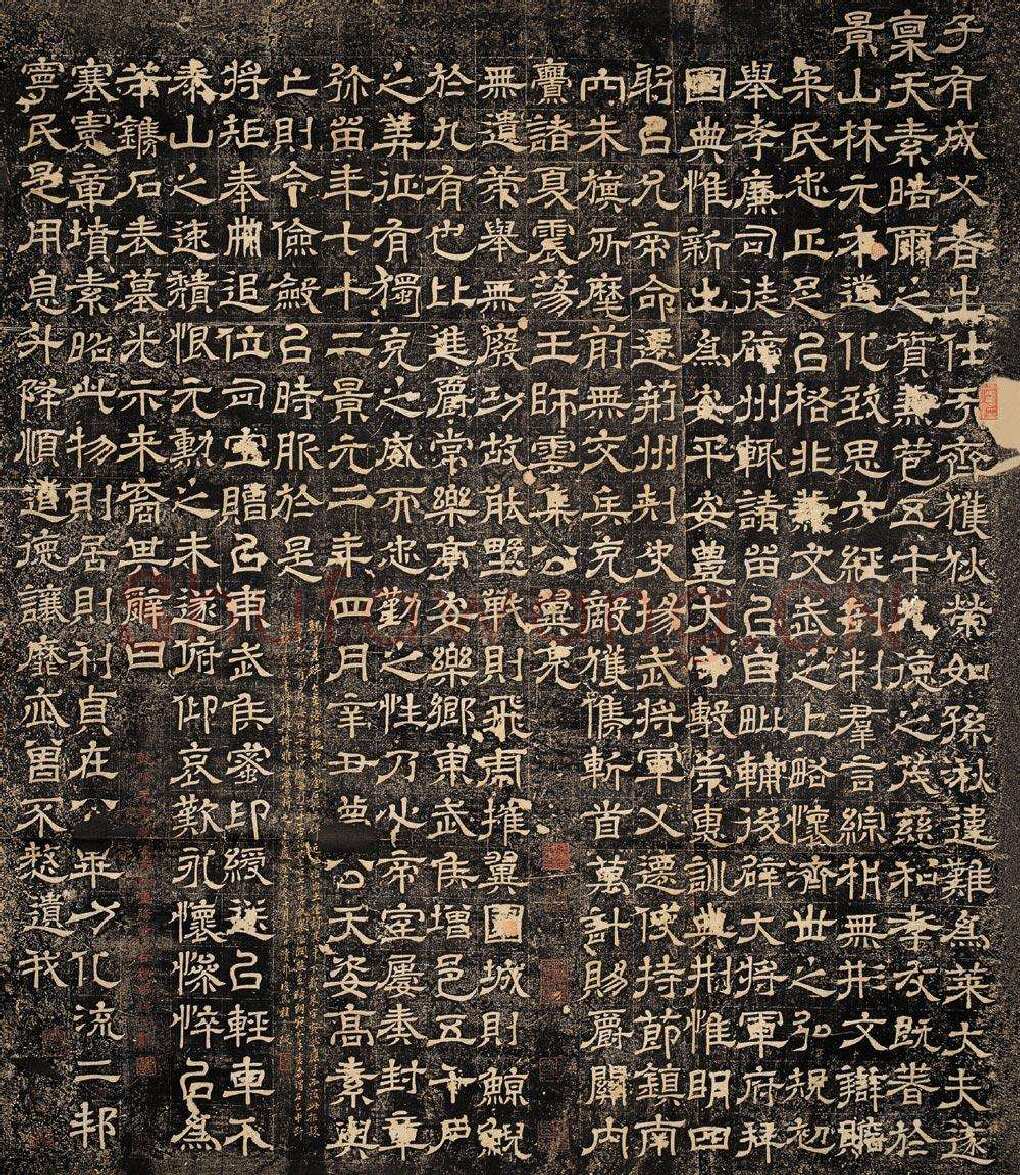 子有成父者出仕于齊獲狄榮如孫湫違難爲萊大夫遂
稟天素皓爾之質兼苞五才九德之茂慈和孝友既著於
景山林元本道化致思六經剖判羣言綜析無形文辯贍
民忠正足以格非兼文武之上略懷濟世之弘規初
舉孝廉司徒辟州輒請留以自毗輔後辟大將軍府拜
國典惟新出爲安平安豐太守敷崇惠訓典刑惟明四
躬以允帝命遷荊州刺史揚武將軍又遷使持節鎮南
內朱旗所麾前無交兵克敵獲儁斬首萬計賜爵關內
釁諸夏震蕩王師雲集公翼亮
無遺策舉無廢功故能野戰則飛虜摧翼圍城則鯨鯢
於九有也比進爵常樂亭安樂鄉東武侯增邑五千戶
之筭征有獨克之威而忠勤之性乃心帝室屢奏封章
弥留年七十二景元二年四月辛丑薨公天姿高素與
亡則令儉斂以時服於是
將矩奉冊追位司空贈以東武侯蜜印綬送以輕車不
泰山之速穨恨元勳之未遂俯仰哀歎永懷慘悴以爲
等鐫石表墓光示来裔其辭曰
塞憲章墳素昭此物則居則利貞在公平以化流二邦
寧民是用息升降順道德讓靡忒曷不憖遺我
shufawang.CN